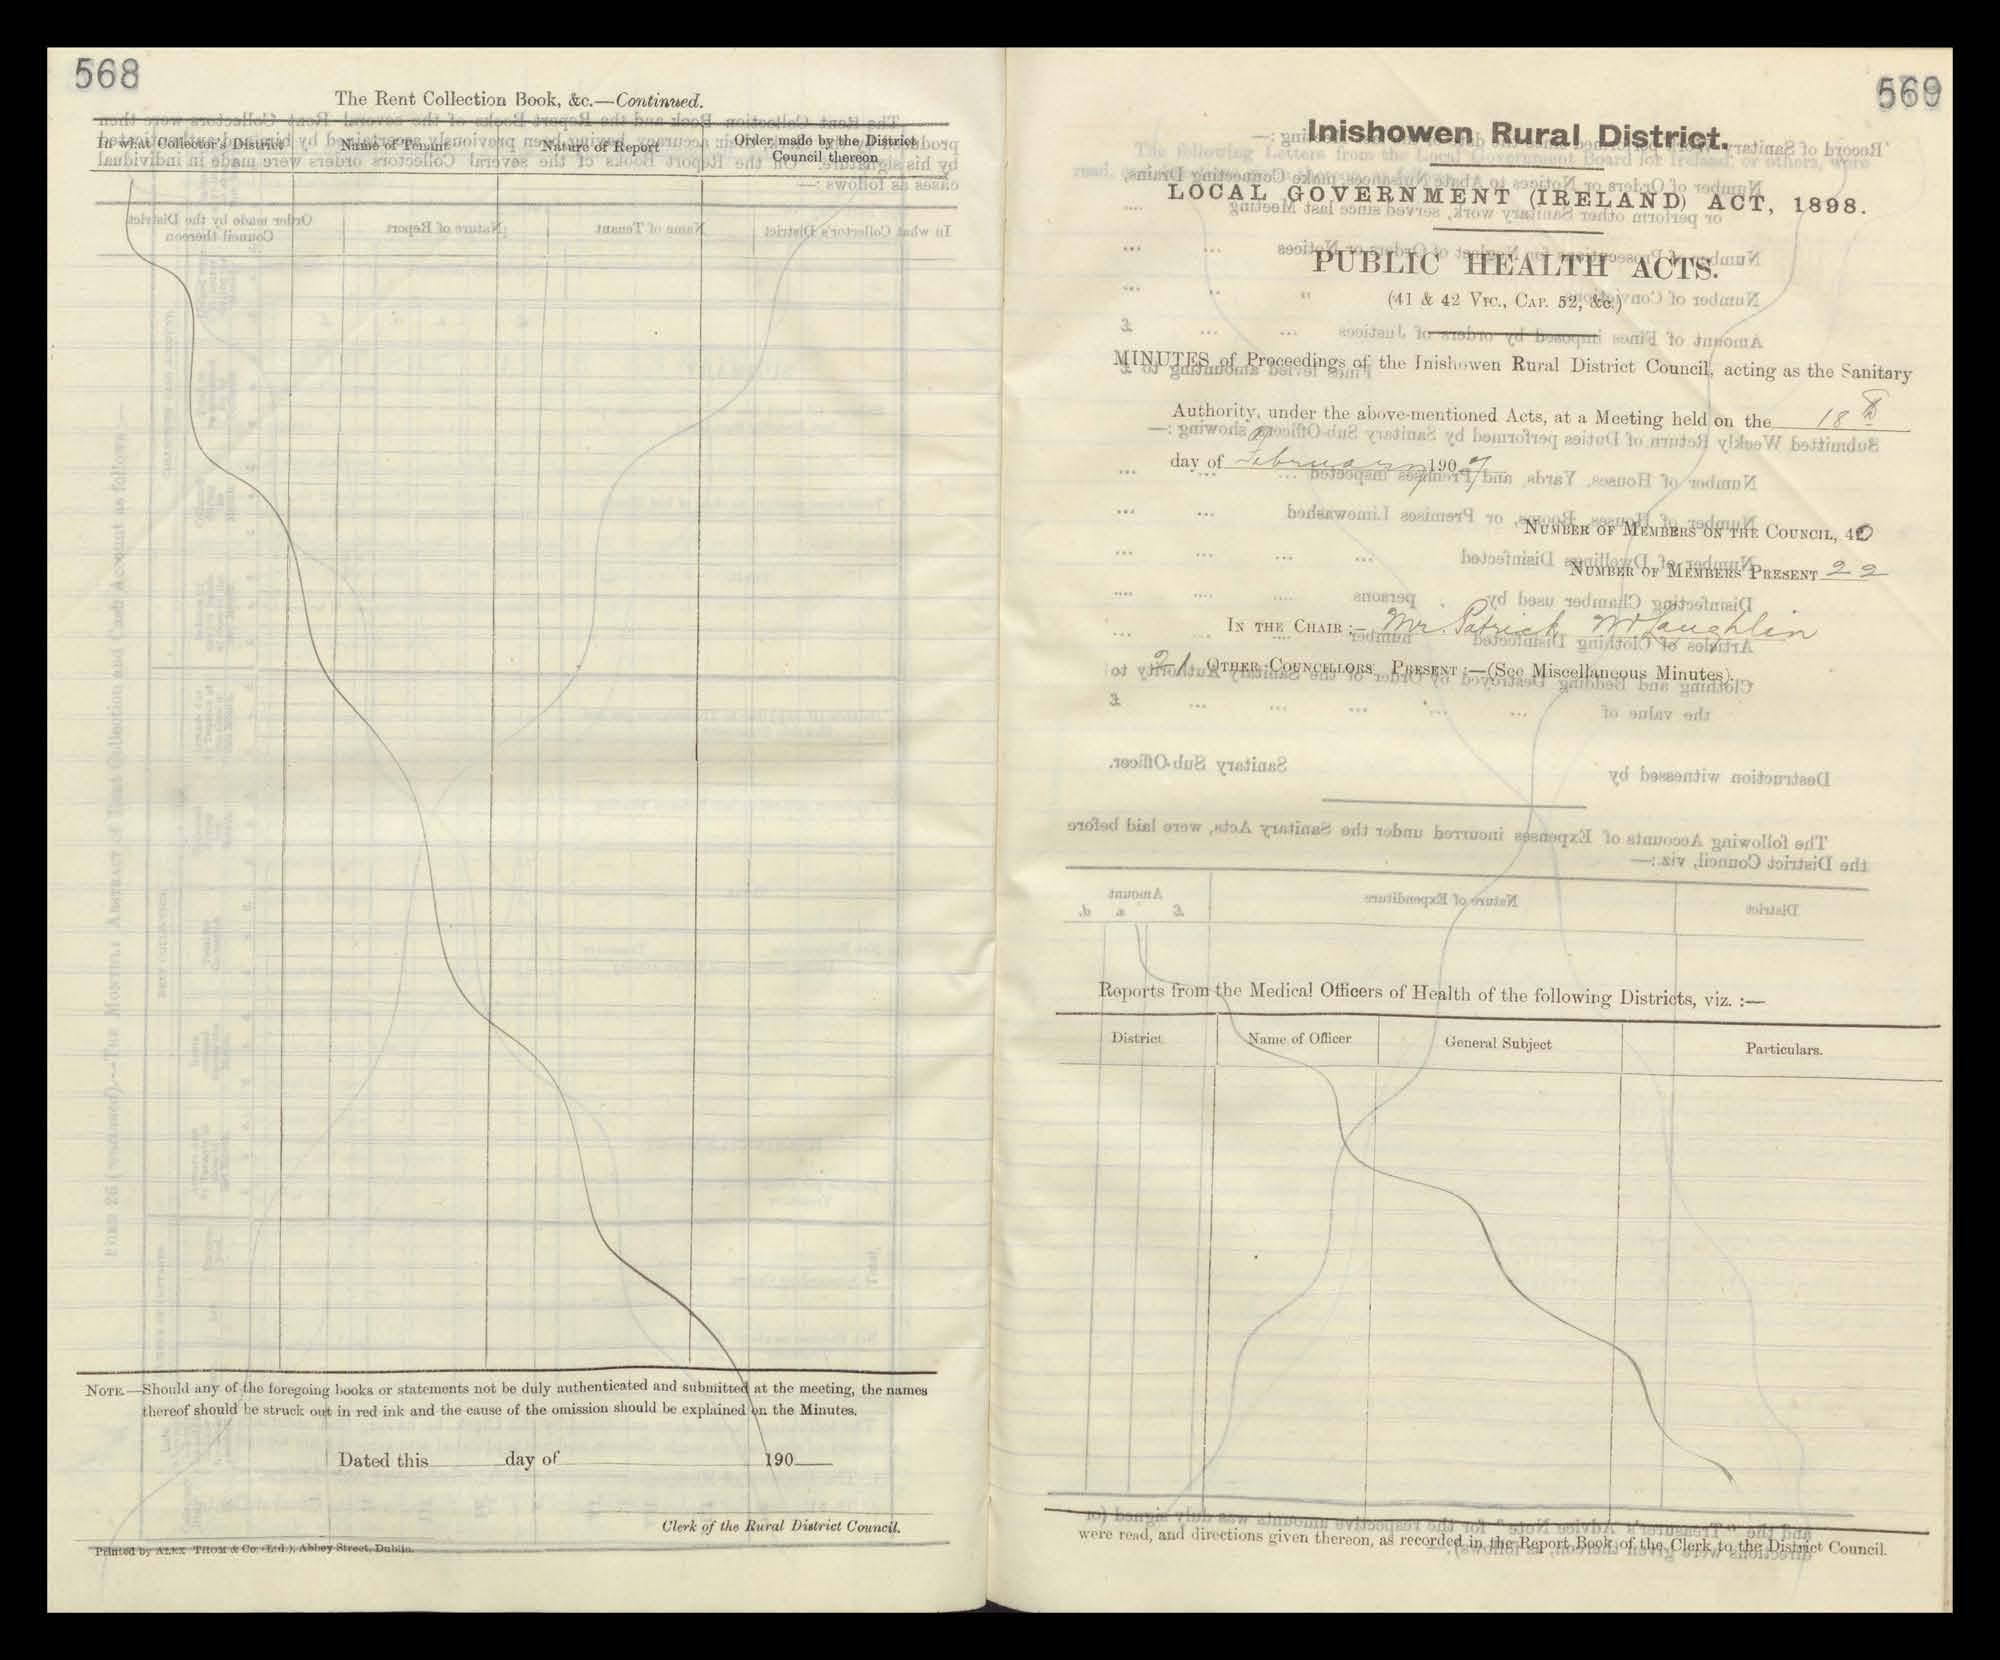 568
The Rent Collection Book, &c.—Continued.
In what Collector's District
Name of Tenant
Nature of Report
Order made by the District
Council thereon
NOTE.—Should any of the foregoing books or statements not be duly authenticated and submitted at the meeting, the names
thereof should be struck out in red ink and the cause of the omission should be explained on the Minutes.
Dated this day of 190
Clerk of the Rural District Council.
Printed by ALEX. THOM & Co. (Ltd.), Abbey Street, Dublin.
569
Inishowen Rural District.
LOCAL GOVERNMENT (IRELAND) ACT, 1898.
PUBLIC HEALTH ACTS.
(41 & 42 VIC., CAP. 52, &c.)
MINUTES of Proceedings of the Inishowen Rural District Council, acting as the Sanitary
Authority, under the above-mentioned Acts, at a Meeting held on the 18th
day of February 1907
NUMBER OF MEMBERS ON THE COUNCIL, 40
NUMBER OF MEMBERS PRESENT 22
IN THE CHAIR:— Mr. Patrick McLaughlin
21 OTHER COUNCILLORS PRESENT:—(See Miscellaneous Minutes).
Reports from the Medical Officers of Health of the following Districts, viz. :—
District
Name of Officer
General Subject
Particulars.
were read, and directions given thereon, as recorded in the Report Book of the Clerk to the District Council.